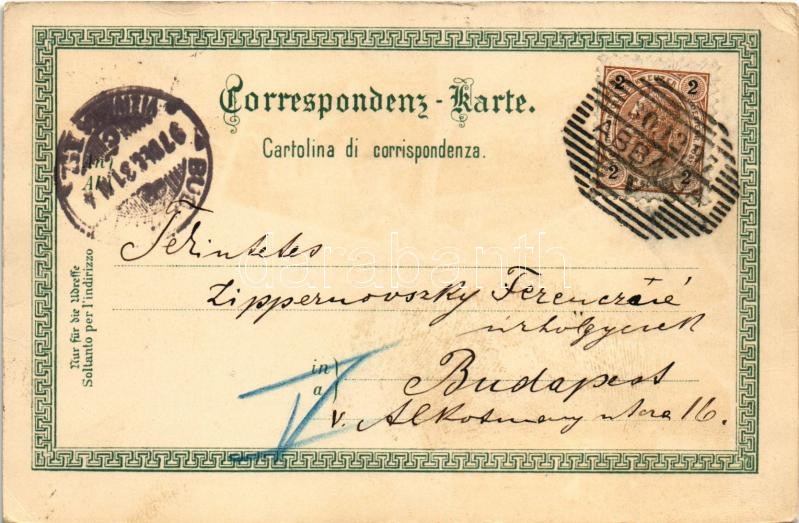 Correspondenz-Karte.
Cartolina di corrispondenza.
An
Al
2 2
2 2
ABBA
BU
Tekintetes
Zippernovszky Ferenczné
úrhölgynek
in
a
Budapest
V. Alkotmány utcza 16.
Nur für die Adresse
Soltanto per l'indirizzo
V
darabanth